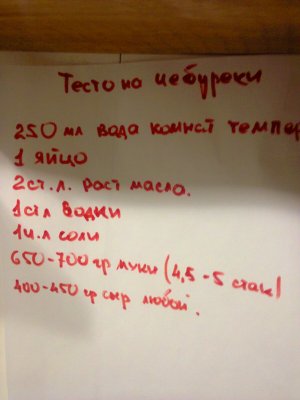 Тесто на чебуреки
250 мл вода комнат темпер
1 яйцо
2ст.л. раст масло.
1стл водки
1ч.л соли
650-700 гр муки (4,5-5 стак)
400-450 гр сыр любой.